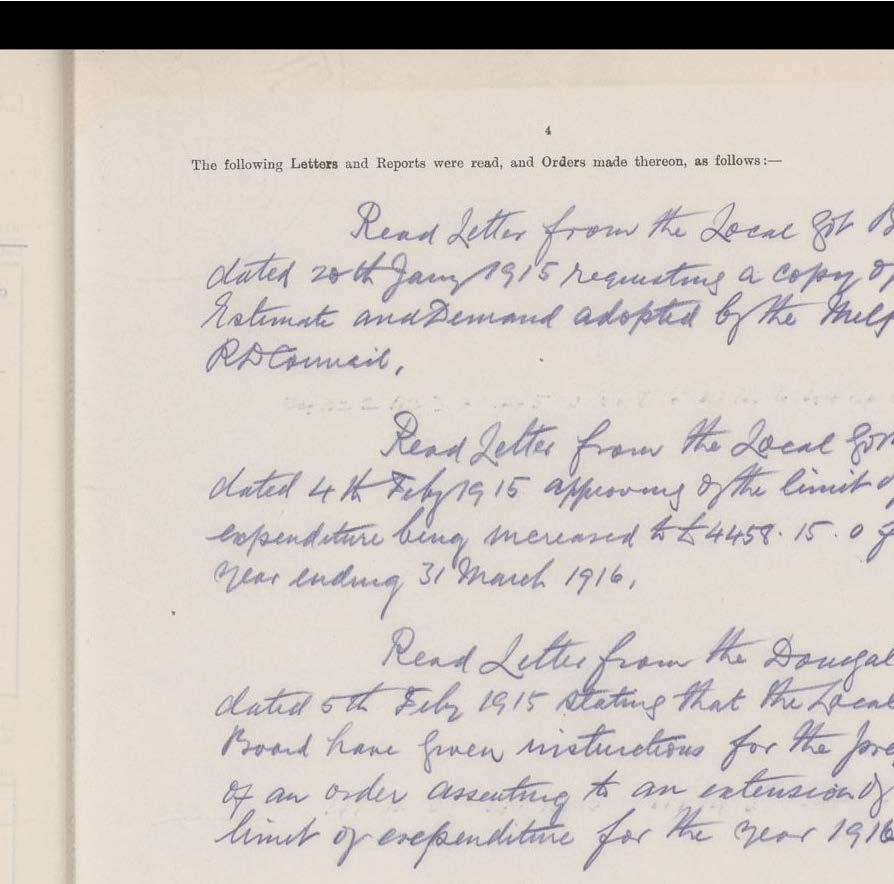 4
The following Letters and Reports were read, and Orders made thereon, as follows:—
Read Letter from the Local Govt B
dated 20th Jany 1915 requesting a copy of
Estimate and Demand adopted by the Milf
RD Council,
Read Letter from the Local Gov
dated 4th Feby 1915 approving of the limit of
expenditure being increased to £4458.15.0 f
year ending 31 March 1916,
Read Letter from the Donegal
dated 5th Feby 1915 stating that the Local
Board have given instructions for the pre
of an order assenting to an extension of
limit of expenditure for the year 1916